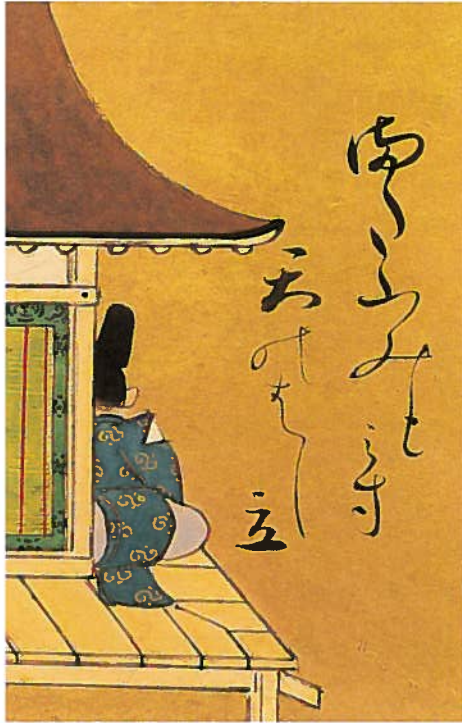 またふみもみす
天のはし立